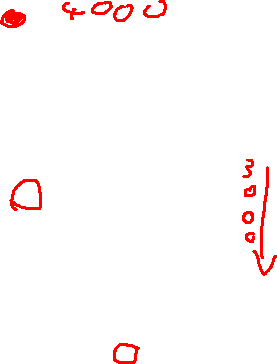 4000
3800